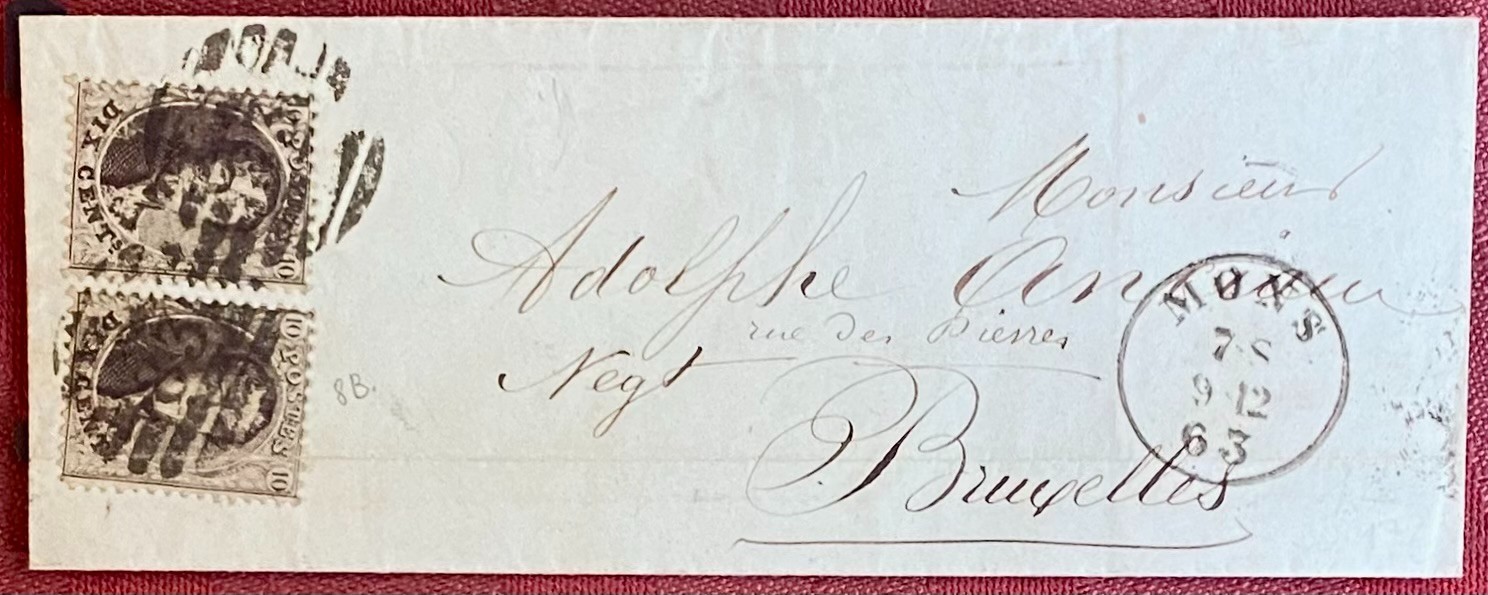 Monsieur
Adolphe
rue des Pierres
Negt
Bruxelles
MONS
7 S
9 12
63
8B.
POSTES
10
DIX CENTS
10 POSTES 10
DIX CENTS